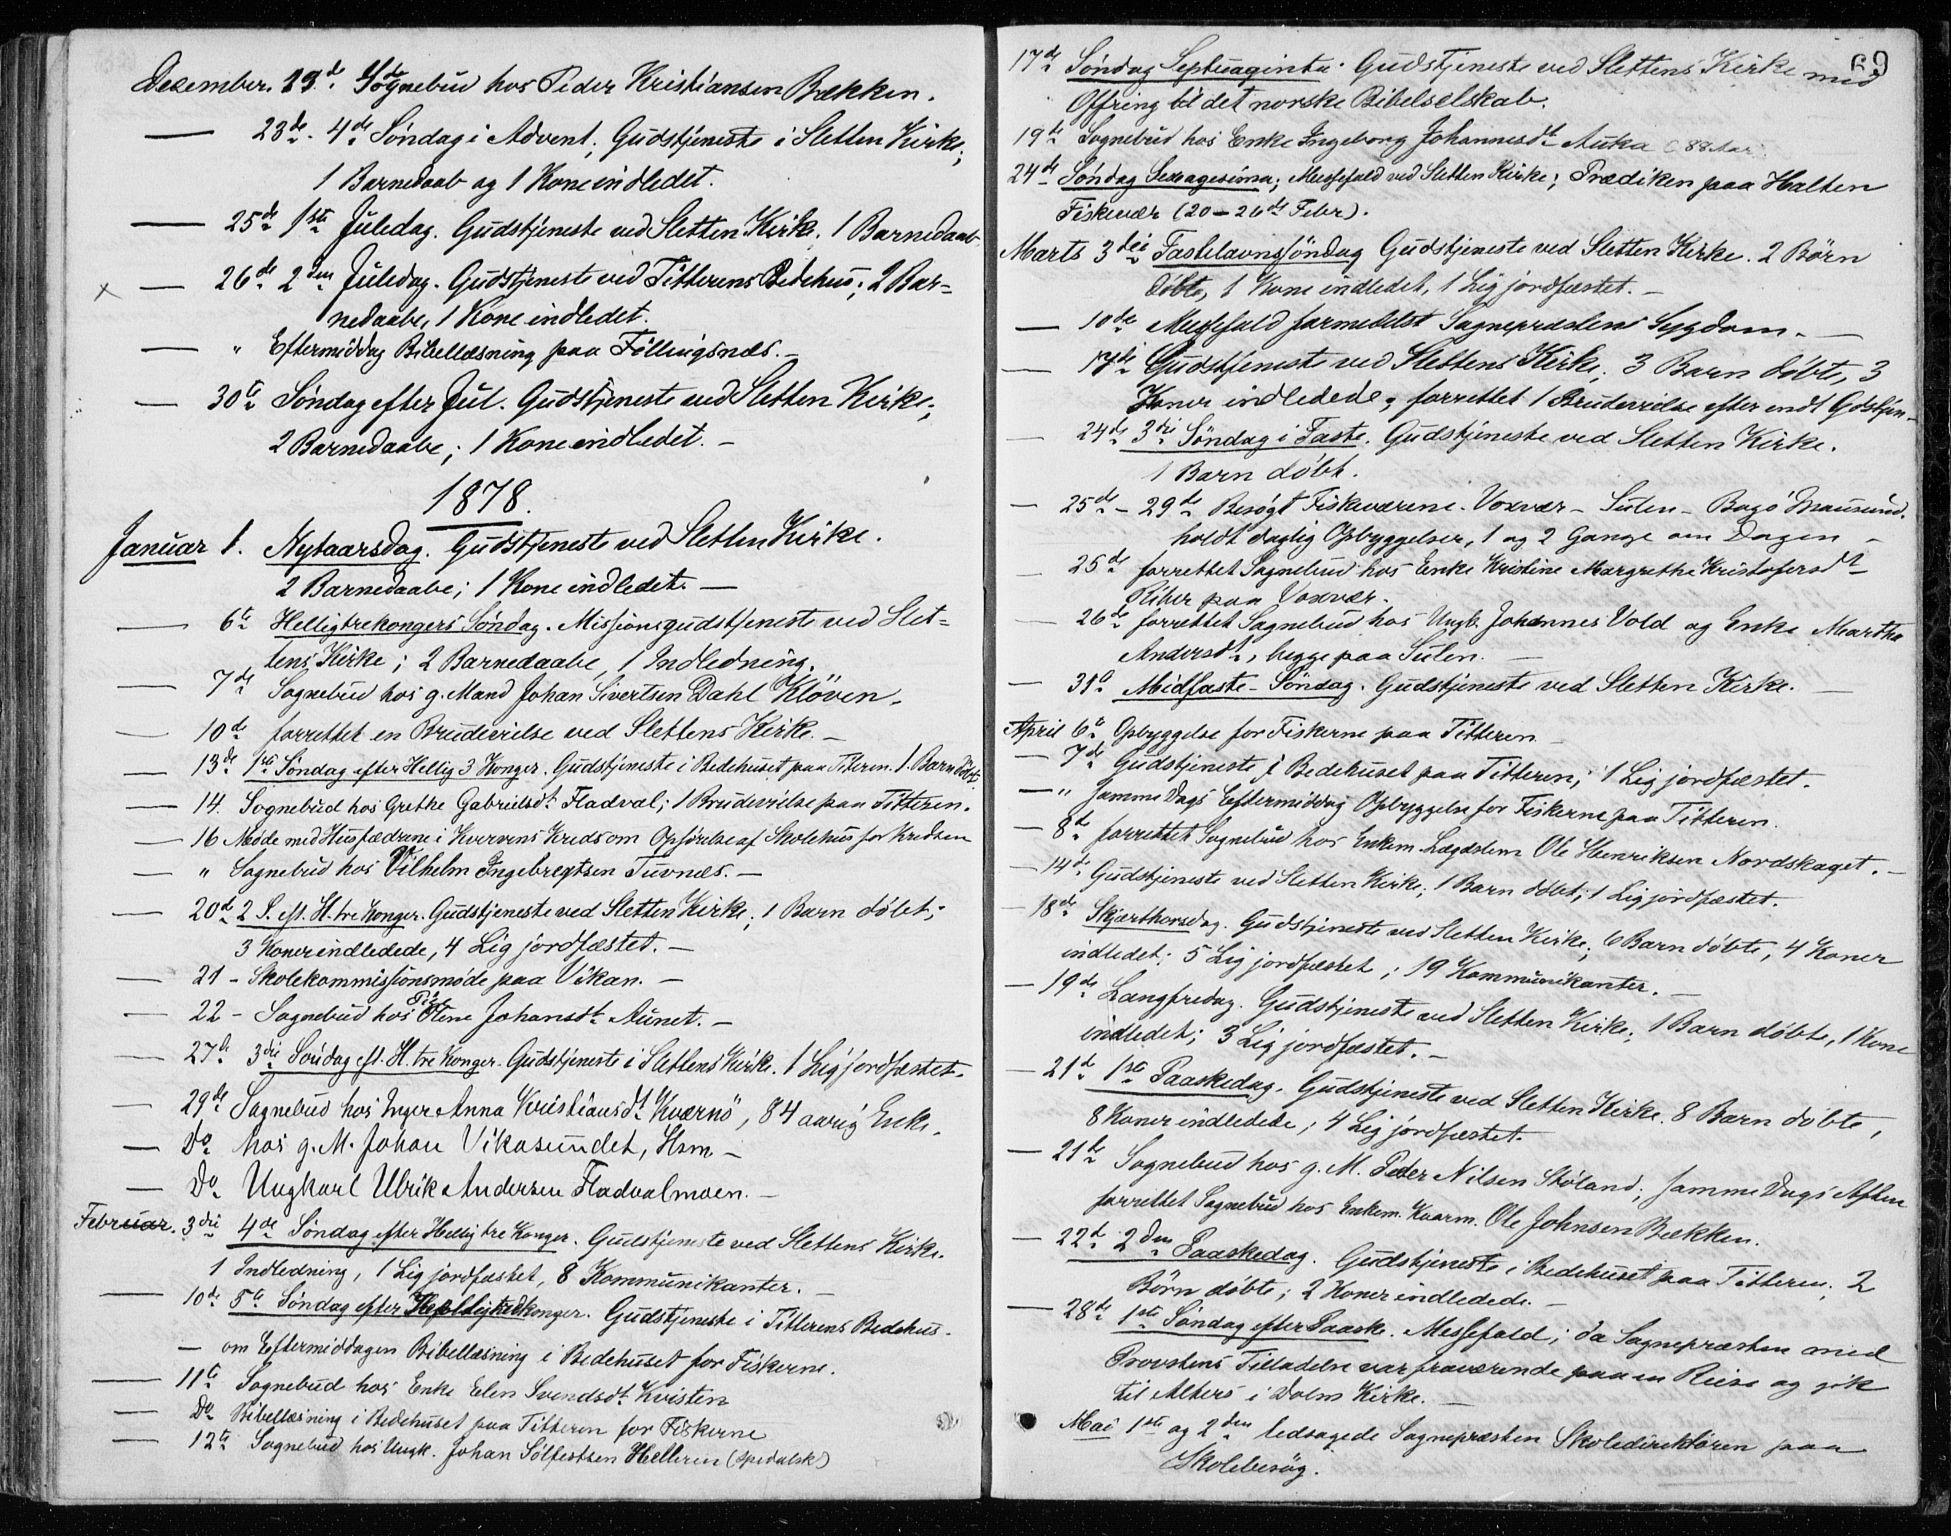 Dezember. 19de Sognebud hos Peder Kristiansen Bækken.
— 23de. 4de Søndag i Advent; Gudstjeneste i Sletten Kirke;
1 Barnedaab og 1 Kone indledet.
— 25de 1ste Juledag. Gudstjeneste ved Sletten Kirk; 1 Barnedaab
× — 26de 2den Juledag. Gudstjeneste ved Titterens Bedehus; 2 Bar=
nedaabe, 1 Kone indledet.
— " Eftermiddag Bibellæsning paa Föllingsnæs. –
— 30te Søndag efter Jul. Gudstjeneste ved Sletten Kirke;
2 Barnedaabe; 1 Kone indledet. –
1878.
Januar 1. Nytaarsdag. Gudstjeneste ved Sletten Kirke.
2 Barnedaabe; 1 Kone indledet. —
— 6te Helligtrekongers Søndag. Missionsgudstjeneste ved Slet=
tens Kirke; 2 Barnedaabe, 1 Indledning.
— 7de Sognebud hos g. Mand Johan Sivertsen Dahl Klöven.
— 10de forrettet en Brudevielse ved Slettens Kirke. –
— 13de 1ste Søndag efter Hellig 3 Konger. Gudstjeneste i Bedehuset paa Titteren. 1 Barn döbt.
— 14. Sognebud hos Grethe Gabrielsdt Fladval; 1 Brudevielse paa Titteren.
— 16 Møde med Husfædrene i Kvervens Kreds om Opførelse af Skolehus for Kredsen
— " Sognebud hos Vilhelm Ingebregtsen Tuvnæs. –
— 20de 2 S. eft. H. tre Konger. Gudstjeneste ved Sletten Kirke; 1 Barn döbt;
3 Koner indledede, 4 Lig jordfæstet. –
— 21 – Skolekommissionsmøde paa Vikan. –
— 22 – Sognebud hos Olene Johansdt Aunet. –
— 27de 3die Søndag eft. H. tre Konger. Gudstjeneste i Slettens Kirke. 1 Lig jordfæstet.
— 29de Sognebud hos Inger Anna Kristiansdt Kværnö, 84 aarig Enke.
— Do hos g. M. Johan Vikasundet, Hsm –
— Do Ungkarl Ulrik Andersen Fladvalmoen. –
Februar. 3die 4de Søndag efter Hellig tre Konger. Gudstjeneste ved Slettens Kirke.
1 Indledning, 1 Lig jordfæstet, 8 Kommunikanter. –
— 10de 5te Søndag efter Helligtrekonger. Gudstjeneste i Titterens Bedehus.
– om Eftermiddagen Bibellæsning i Bedehuset for Fiskerne.
— 11te Sognebud hos Enke Elen Svendsdt Kvisten
— Do Bibellæsning i Bedehuset paa Titteren for Fiskerne
— 12te Sognebud hos Ungk. Johan Sölfestsen Helleren (spedalsk)
69
17de Søndag Septuaginta. Gudstjeneste ved Slettens Kirke med
Offring til det norske Bibelselskab.
19de Sognebud hos Enke Ingeborg Johannesdt Auka (88 Aar)
24de Søndag Sexagesima; Messefald ved Sletten Kirke; Prædiken paa Halten
Fiskevær (20–26de Febr).
Marts 3die Fastelavnssöndag Gudstjeneste ved Sletten Kirke. 2 Børn
döbte, 1 Kone indledet, 1 Lig jordfæstet. –
— 10de Messefald formedelst Sognepræstens Sygdom. —
— 17de Gudstjeneste ved Slettens Kirke; 3 Barn döbte, 3
Koner indledede; forrettet 1 Brudevielse efter endt Gdstjen.
— 24de 3die Söndag i Faste. Gudstjeneste ved Sletten Kirke.
1 Barn döbt.
— 25de – 29de Besögt Fiskeværene. Voxvær – Sulen – Bogö Mausund.
holdt daglig Opbyggelser, 1 og 2 Gange om Dagen –
— 25de forrettet Sognebud hos Enke Kristine Margrethe Kristofersdt
Riber paa Voxvær.
— 26de forrettet Sognebud hos Ungk. Johannes Vold og Enke Martha
Andersdt, begge paa Sulen. –
— 31te Midfaste-Söndag. Gudstjeneste ved Sletten Kirke. —
April 6te Opbyggelse for Fiskerne paa Titteren –
— 7de Gudstjeneste i Bedehuset paa Titteren; 1 Lig jordfæstet.
— " samme Dags Eftermiddag Opbyggelse for Fiskerne paa Titteren.
— 8de forrettet Sognebud hos Enkem. Lægdslem Ole Henriksen Nordskaget. –
— 14de Gudstjeneste ved Sletten Kirke; 1 Barn döbt; 1 Lig jordfæstet.
— 18de Skjærthorsdag. Gudstjeneste ved Sletten Kirke; 6 Barn döbte, 4 Koner
indledet; 5 Lig jordfæstet; 19 Kommunikanter. –
— 19de Langfredag. Gudstjeneste ved Sletten Kirke; 1 Barn döbte, 1 Kone
indledet; 3 Lig jordfæstet. –
— 21de 1ste Paaskedag. Gudstjeneste ved Sletten Kirke. 8 Barn döbte,
8 Koner indledede; 4 Lig jordfæstet.
— 21de Sognebud hos g. M. Peder Nilsen Skøland; samme Dags Aften
forrettet Sognebud hos Enkem. Kaarm. Ole Johnsen Bækken.
— 22de 2den Paaskedag. Gudstjeneste i Bedehuset paa Titteren; 2
Börn døbte; 2 Koner indledede. –
— 28de 1ste Søndag efter Paaske. Messefald; da Sognepræsten med
Provstens Tilladelse var fraværende paa en Reise og gik
til Alters i Dolm Kirke. –
Mai 1ste og 2den ledsagede Sognepræsten Skoledirektören paa
Skolebesög.